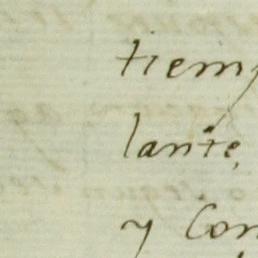 tiemp
lante,
y Con